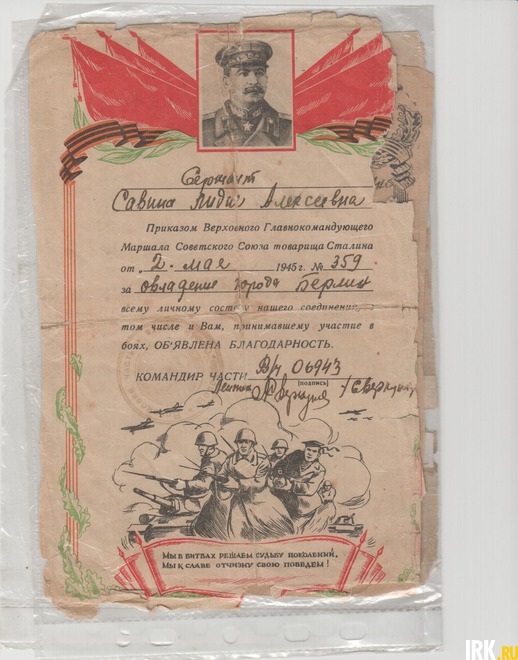 Сержант
Савина Лидия Алексеевна
Приказом Верховного Главнокомандующего
Маршала Советского Союза товарища Сталина
от „2“ мая 1945 г. № 359
за овладение города Берлин
всему личному составу нашего соединения, в
том числе и Вам, принимавшему участие в
боях, ОБ'ЯВЛЕНА БЛАГОДАРНОСТЬ.
КОМАНДИР ЧАСТИ В/ч 06943
[подпись]
МЫ В БИТВАХ РЕШАЕМ СУДЬБУ ПОКОЛЕНИЙ,
МЫ К СЛАВЕ ОТЧИЗНУ СВОЮ ПОВЕДЕМ!
IRK.RU